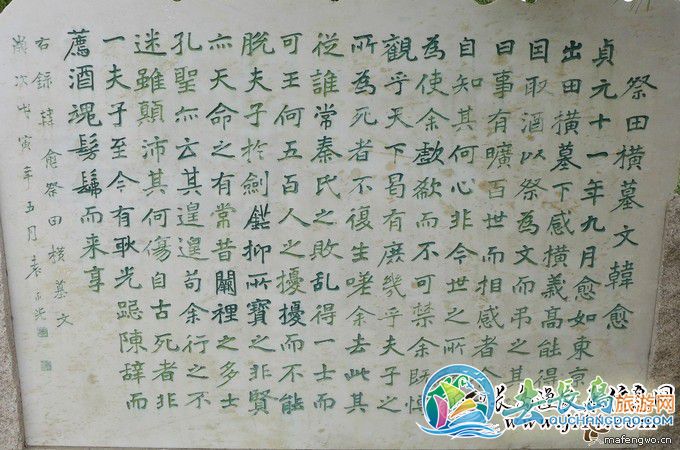 祭田横墓文韓愈
貞元十一年九月愈如東京
出田横墓下感横義高能得
因取酒以祭為文而弔之其
曰事有曠百世而相感者余
自知其何心非今世之所
為使余歔欷而不可禁余既博
觀乎天下曷有庶幾乎夫子之
所為死者不復生嗟余去此其
從誰常秦氏之敗乱得一士而
可王何五百人之擾擾而不能
脫夫子於劍鋩抑所寶之非賢
亦天命之有常昔闕裡之多士
孔聖亦云其遑遑苟余行之不
迷雖顛沛其何傷自古死者非
一夫子至今有耿光跽陳辭而
薦酒魂髣髴而来享
右録韓愈祭田横墓文
歲次戊寅年五月袁
去長岛旅游网
QUCHANGDAO.COM
mafengwo.cn